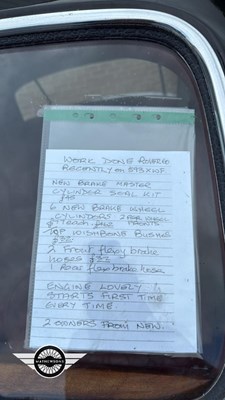 WORK DONE
RECENTLY ON 593XWF.
NEW BRAKE MASTER
CYLINDER SEAL KIT
£45
6 NEW BRAKE WHEEL
CYLINDERS
TOP WISHBONE BUSHES
£32
2 Front flexy brake
hoses £33
1 Rear flexy brake hose
ENGINE LOVELY
STARTS FIRST TIME
EVERY TIME
2 OWNERS FROM NEW.
MATHEWSONS